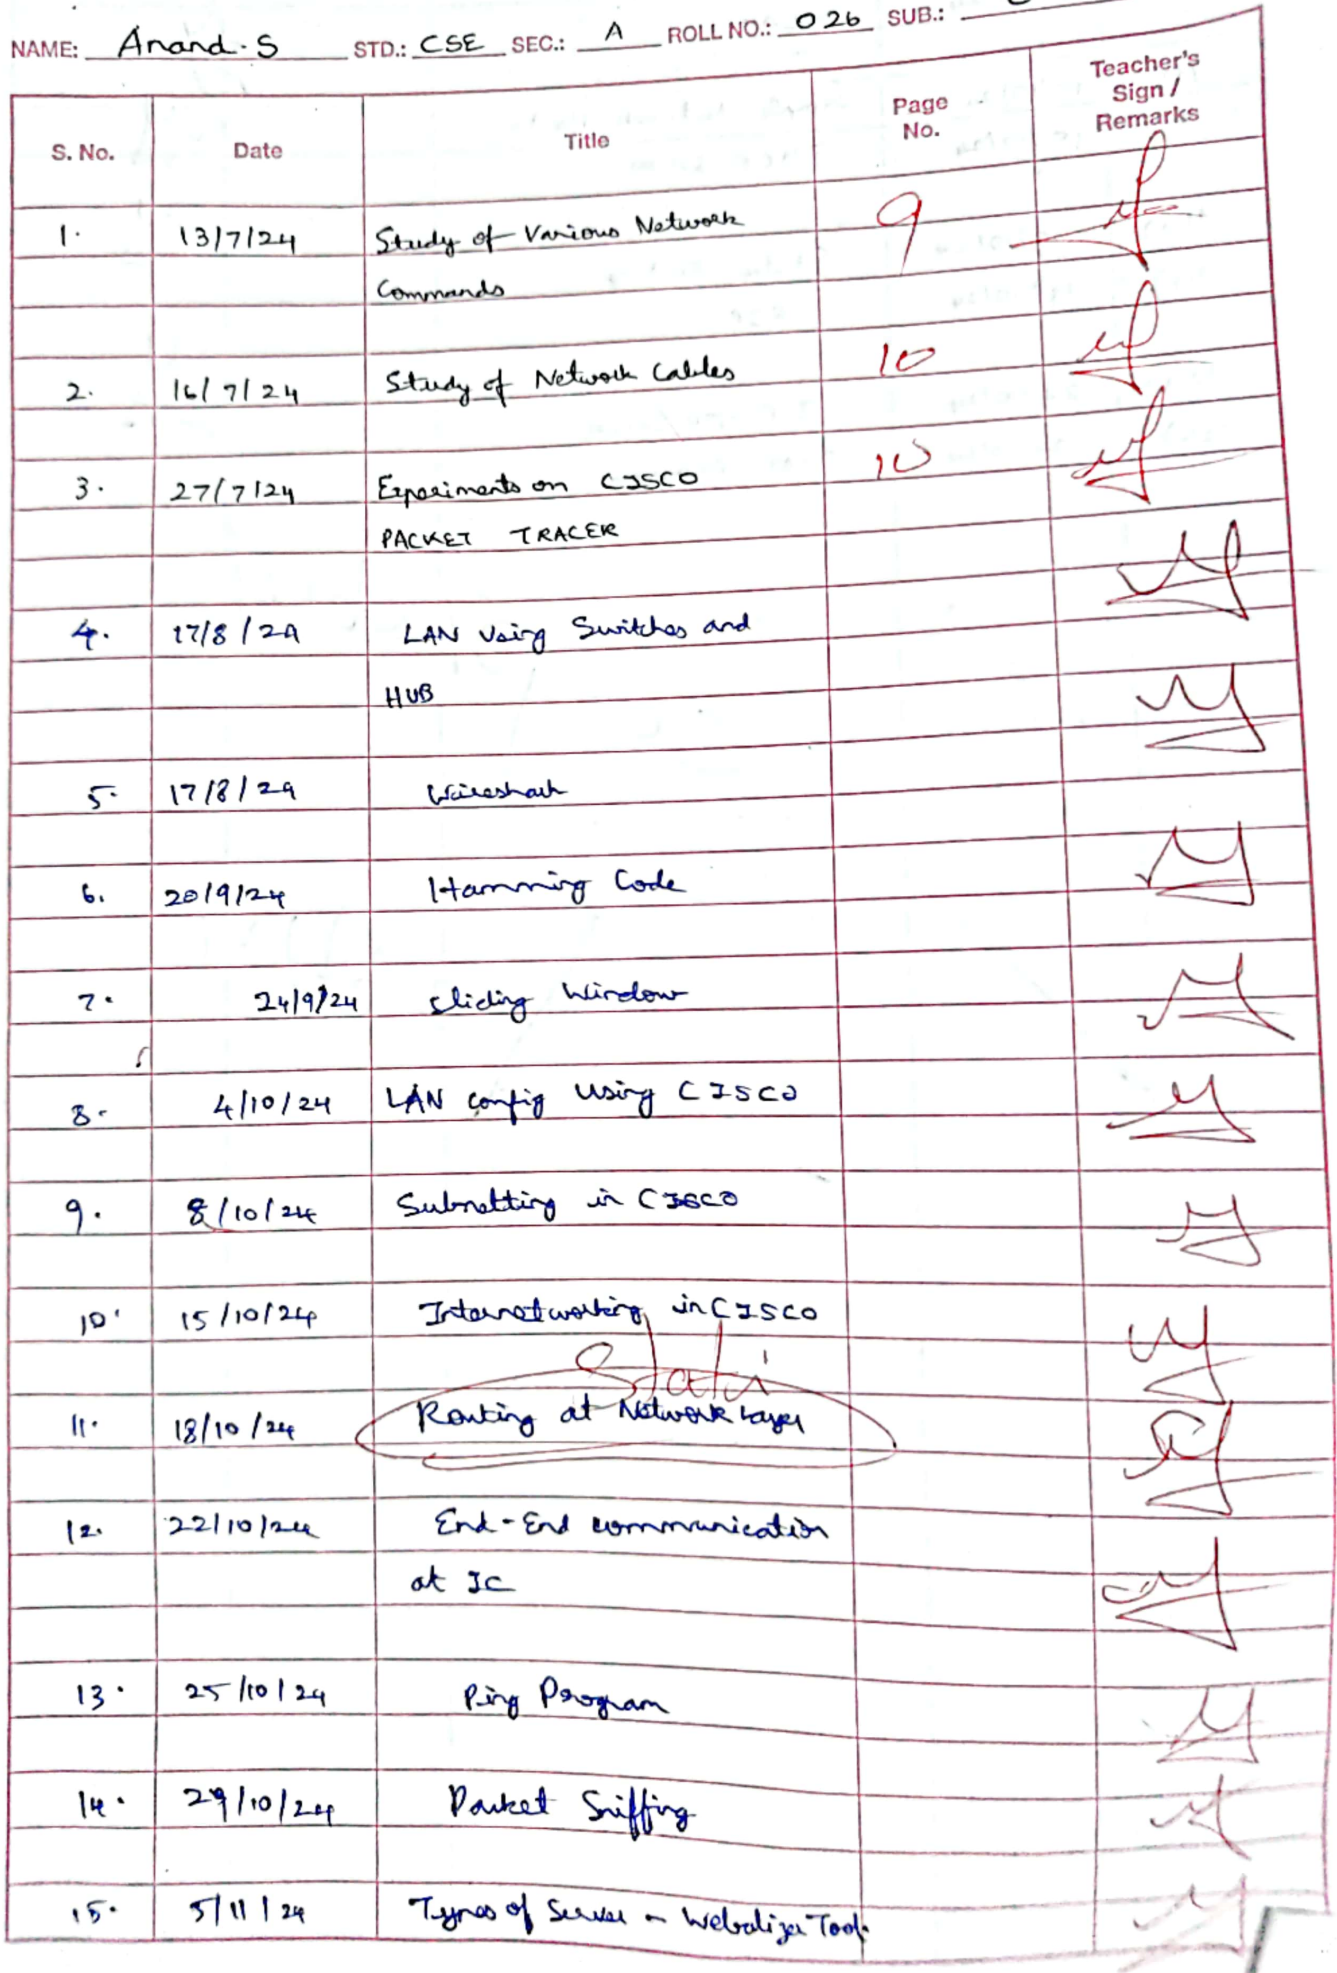 NAME: Anand.S STD.: CSE SEC.: A ROLL NO.: 026 SUB.:
S. No. Date Title Page No. Teacher's Sign / Remarks
1. 13/7/24 Study of Various Network 9
Commands
2. 16/7/24 Study of Network Cables 10
3. 27/7/24 Experiments on CISCO 10
PACKET TRACER
4. 17/8/24 LAN Using Switches and
HUB
5. 17/8/24 Wireshark
6. 20/9/24 Hamming Code
7. 24/9/24 Sliding Window
8. 4/10/24 LAN config using CISCO
9. 8/10/24 Subnetting in CISCO
10. 15/10/24 Internetworking in CISCO
11. 18/10/24 Routing at Network Layer
12. 22/10/24 End-End communication
at
13. 25/10/24 Ping Program
14. 29/10/24 Packet Sniffing
15. 5/11/24 Types of Server - Webalizer Tool.